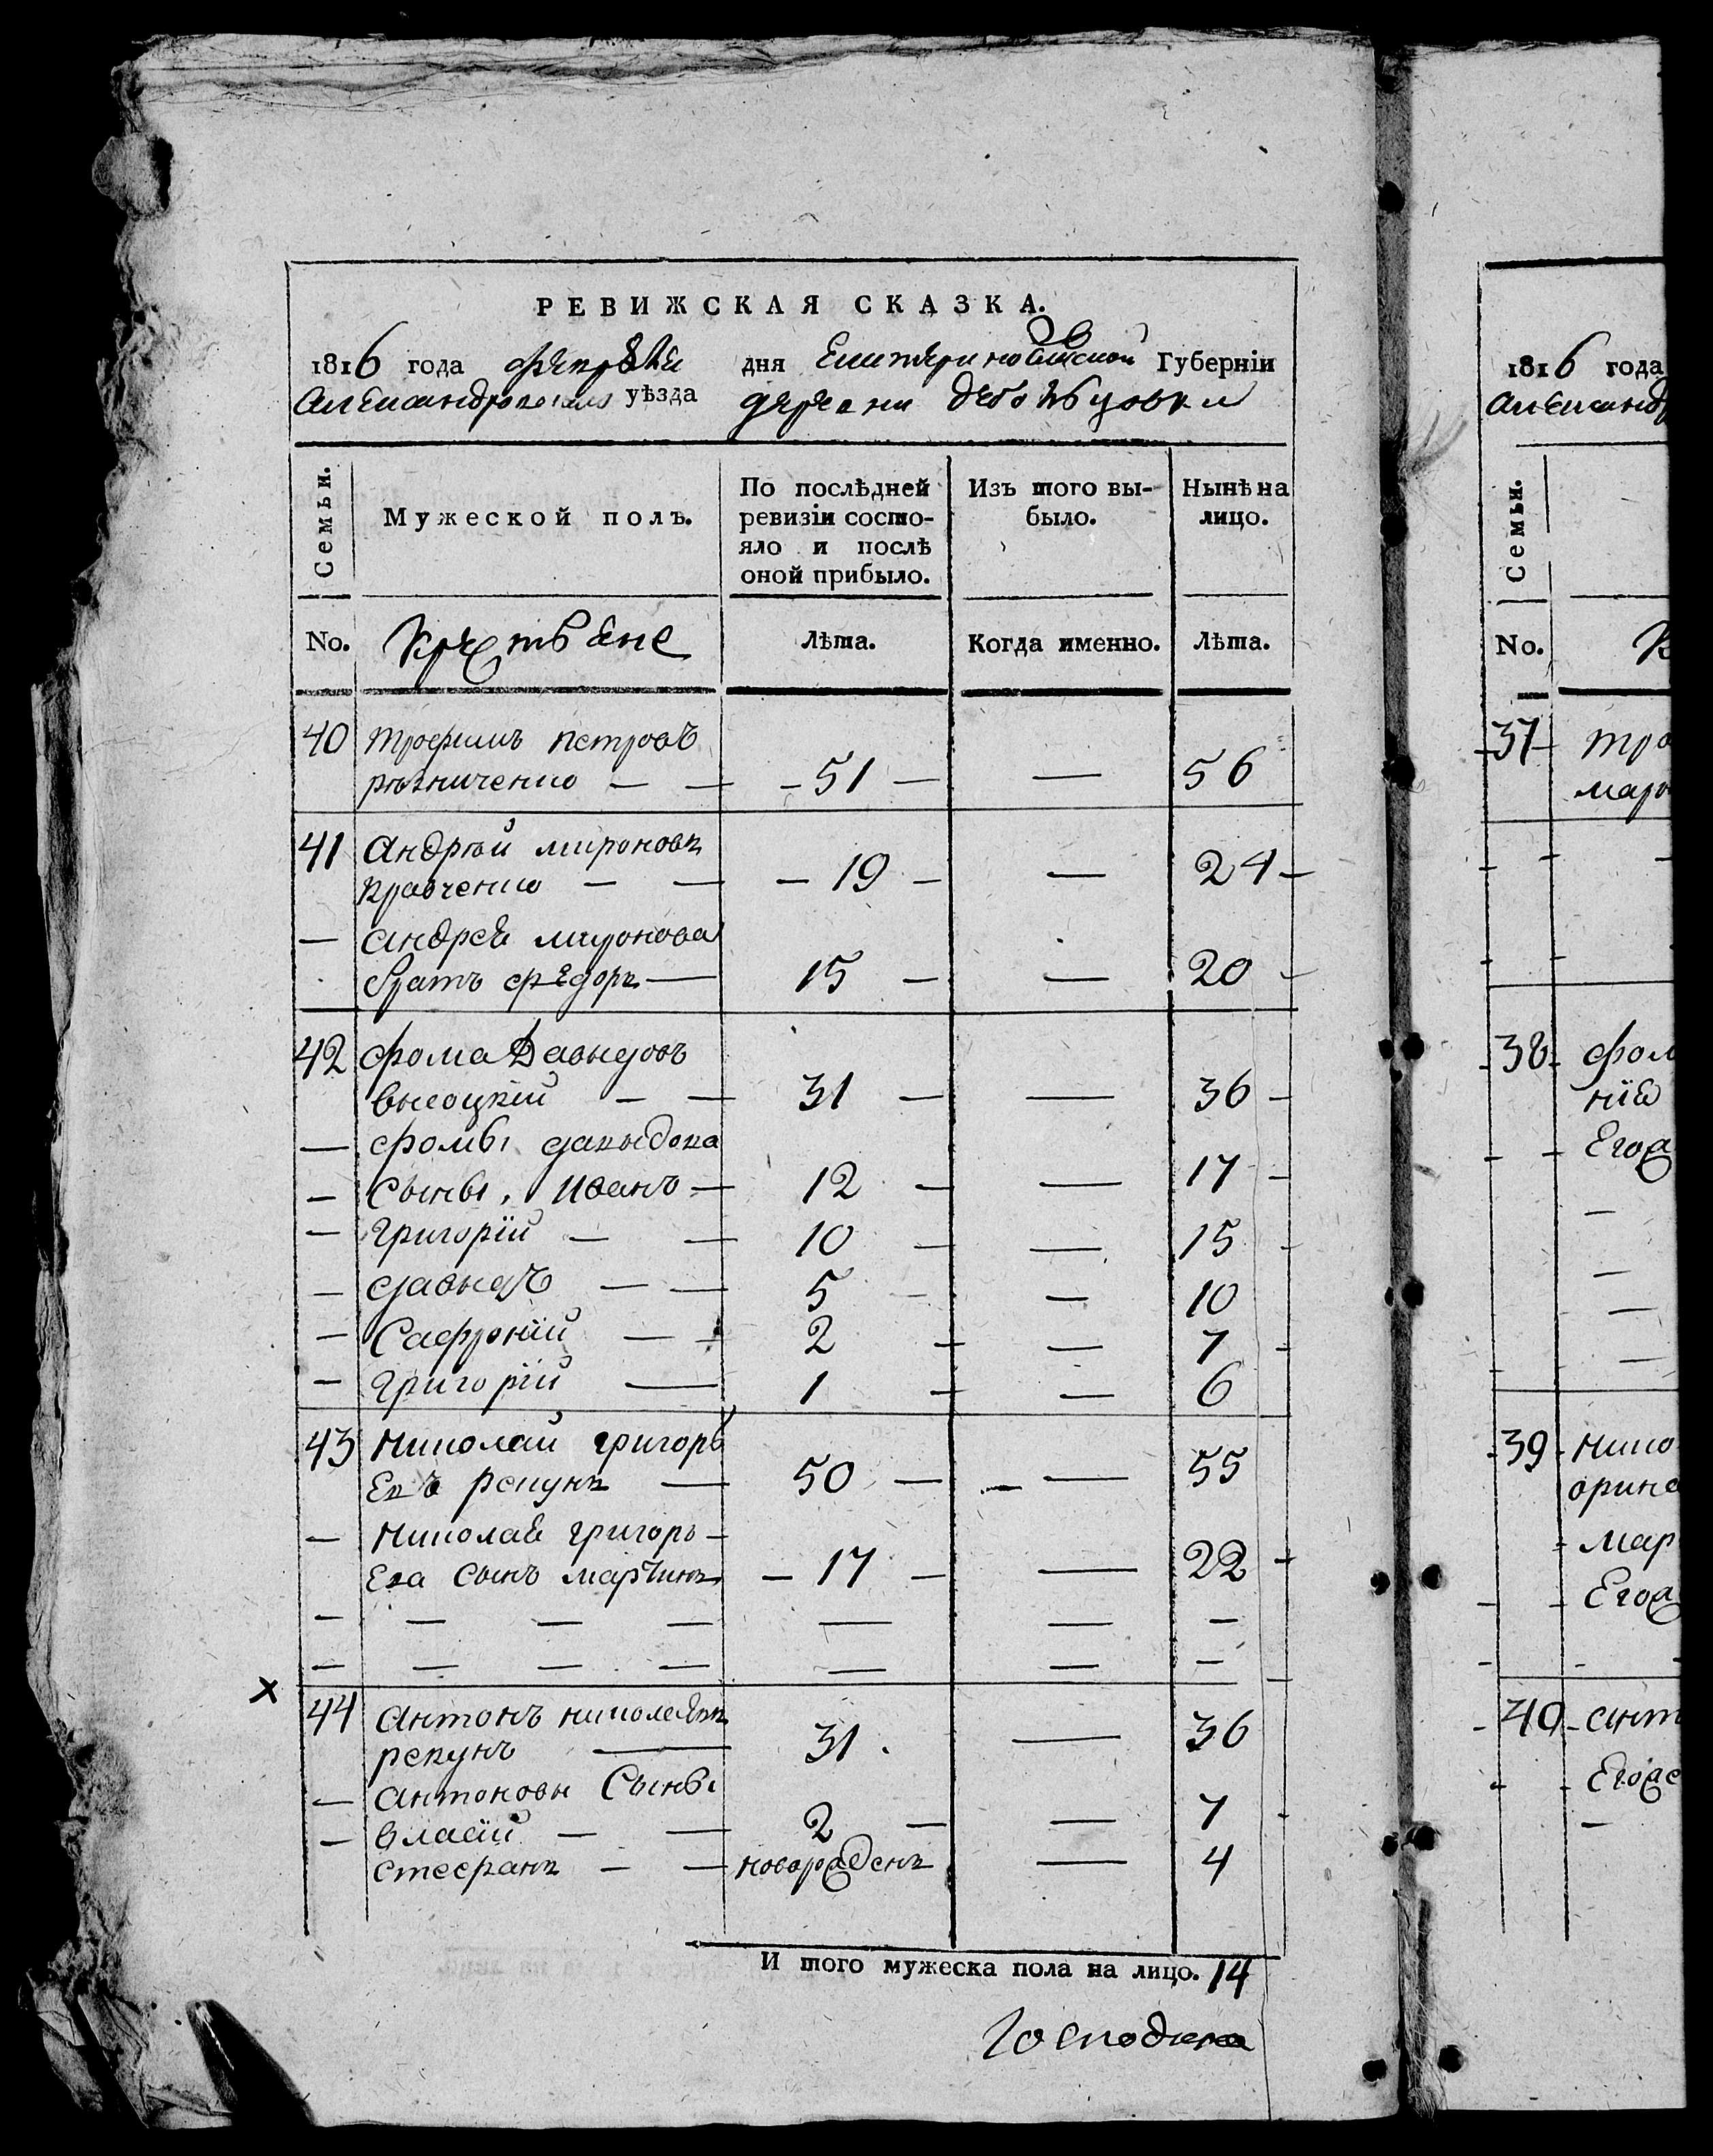 РЕВИЖСКАЯ СКАЗКА.
1816 года февраля дня Екатеринославской Губерніи
Александровскаго уѣзда деревни
Семьи.
Мужеской полъ.
По послѣдней ревизіи состо-
яло и послѣ
оной прибыло.
Изъ того вы-
было.
Нынѣ на
лицо.
No. Крестьяне Лѣта. Когда именно. Лѣта.
40 трофимъ петровъ
резниченко — — — 51 — — 56
41 андрѣй мироновъ
кравченко — — — 19 — — 24 —
— андрея миронова
братъ федоръ — 15 — — 20 —
42 фома Давыдовъ
высоцкій — — 31 — — 36 —
— фомы давыдова
— сыны, иванъ — 12 — — 17 —
— григорій — — 10 — — 15 —
— давыдъ — — 5 — — 10
— Сафроній — — 2 — — 7 —
— григорій — 1 — — 6
43 николай григорь
евъ репунъ — 50 — — 55
— николая григорь —
ева сынъ мартинъ — 17 — — 22 —
— — — — — — —
— — — — — — —
х
44 антонъ николаевъ
репунъ — 31 . — 36
— антоновы Сыны
— власій — — 2 — — 7 -
стефанъ — — новорожденъ — 4
И того мужеска пола на лицо. 14
Господина
1816 года
Александр
Семьи.
No. К
37 тро
марь
38 фом
нія
Его д
39 нико
ирина
мар
Его д
40 ант
Его